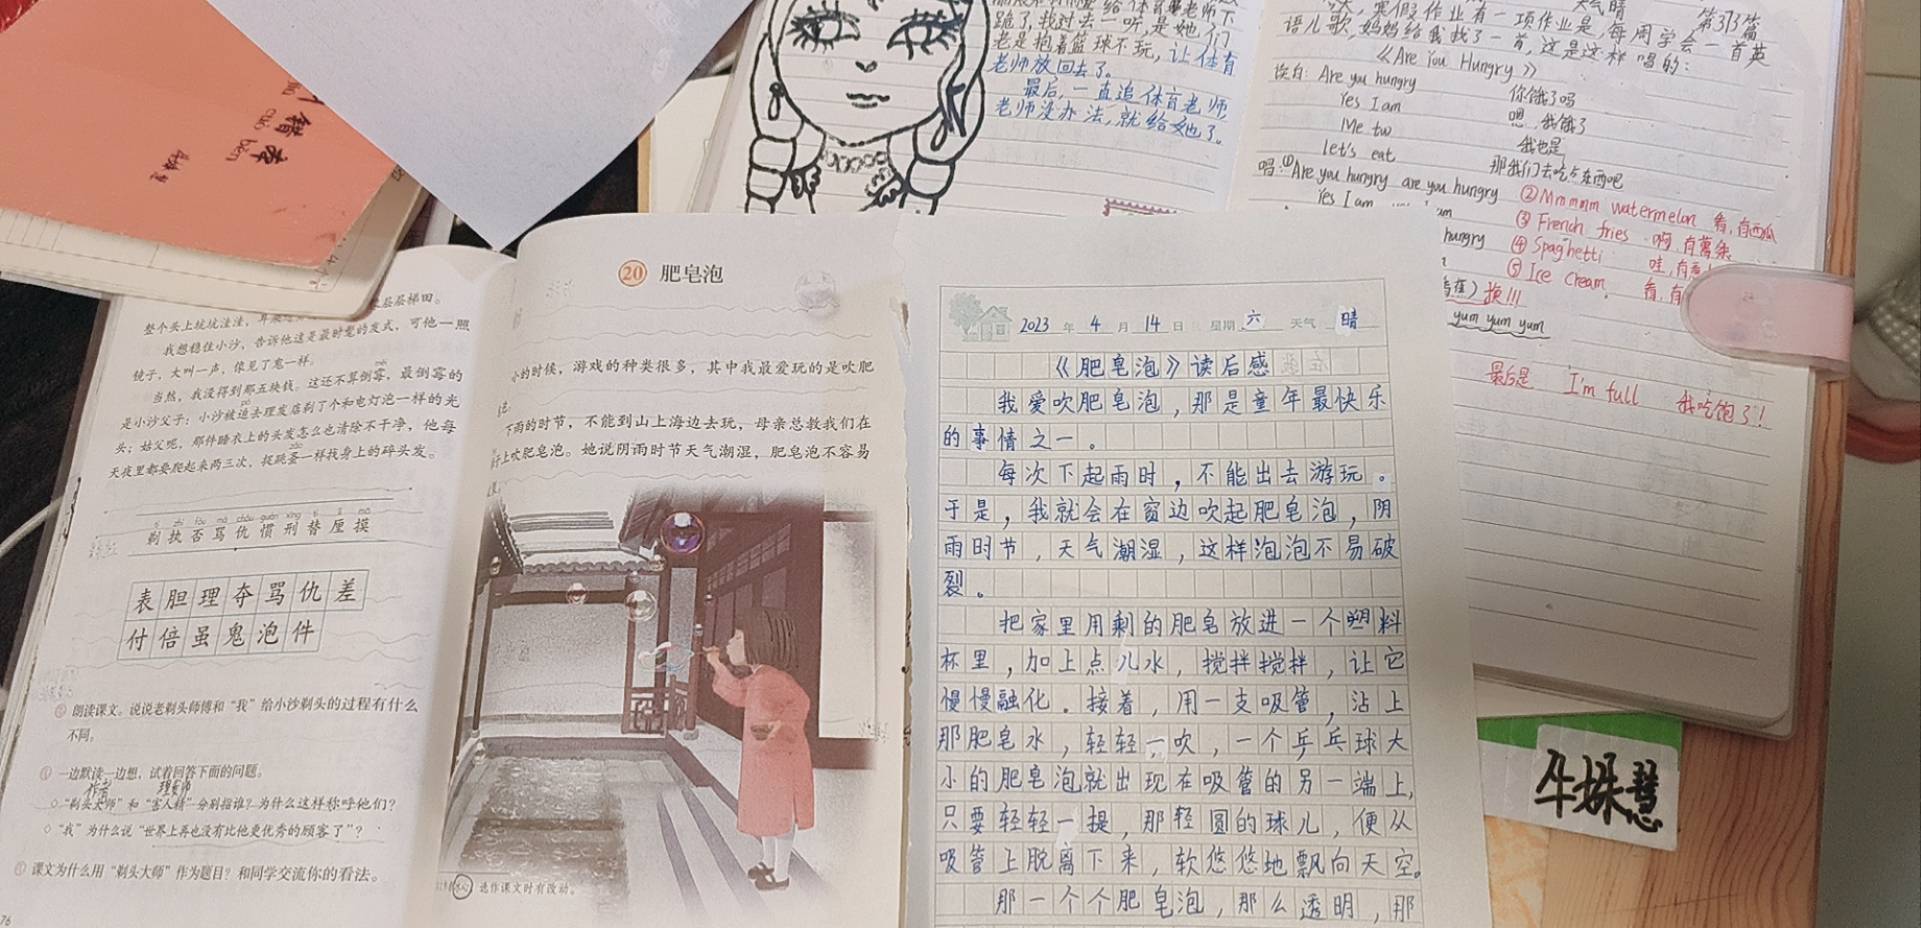 错
cuò
běn
老师下
跪了,我过去一听,是她们
老是抱着篮球不玩,让体育
老师放回去了。
最后,一直追体育老师,
老师没办法,就给她了。
天气晴
第373篇
寒假作业有一项作业是,每周学会一首英
语儿歌,妈妈给我找了一首,这是这样唱的:
《Are you Hungry》
Are you hungry
你饿了吗
Yes I am
嗯,我饿了
Me two
我也是
let's eat
那我们去吃点东西吧
唱:①Are you hungry are you hungry
Yes I am
hungry
②Mmmmm watermelon 看,有西瓜
③French fries 啊,有薯条
④Spaghetti 哇,有
⑤Ice Cream, 看,有
换!!!
yum yum yum
最后是 I'm full 我吃饱了!
层层梯田。
整个头上坑坑洼洼,
我想稳住小沙,告诉他这是最时髦的发式,可他一照
镜子,大叫一声,像见了鬼一样。
当然,我没得到那五块钱。这还不算倒霉,最倒霉的
是小沙父子:小沙被迫去理发店剃了个和电灯泡一样的光
头;姑父呢,那件睡衣上的头发怎么也清除不干净,他每
天夜里都要爬起来两三次,捉跳蚤一样找身上的碎头发。
剃执否骂仇惯刑替厘摸
表胆理夺骂仇差
付倍虽鬼泡件
朗读课文。说说老剃头师傅和“我”给小沙剃头的过程有什么
不同。
一边默读一边想,试着回答下面的问题。
◇“剃头大师”和“害人精”分别指谁?为什么这样称呼他们?
◇“我”为什么说“世界上再也没有比他更优秀的顾客了”?
课文为什么用“剃头大师”作为题目?和同学交流你的看法。
76
20 肥皂泡
小的时候,游戏的种类很多,其中我最爱玩的是吹肥
下雨的时节,不能到山上海边去玩,母亲总教我们在
子上吹肥皂泡。她说阴雨时节天气潮湿,肥皂泡不容易
选作课文时有改动。
2023年4月14日 星期六 天气 晴
《肥皂泡》读后感
我爱吹肥皂泡,那是童年最快乐
的事情之一。
每次下起雨时,不能出去游玩。
于是,我就会在窗边吹起肥皂泡,阴
雨时节,天气潮湿,这样泡泡不易破
裂。
把家里用剩的肥皂放进一个塑料
杯里,加上点儿水,搅拌搅拌,让它
慢慢融化。接着,用一支吸管,沾上
那肥皂水,轻轻一吹,一个乒乓球大
小的肥皂泡就出现在吸管的另一端上,
只要轻轻一提,那轻圆的球儿,便从
吸管上脱离下来,软悠悠地飘向天空。
那一个个肥皂泡,那么透明,那
牛垛慧